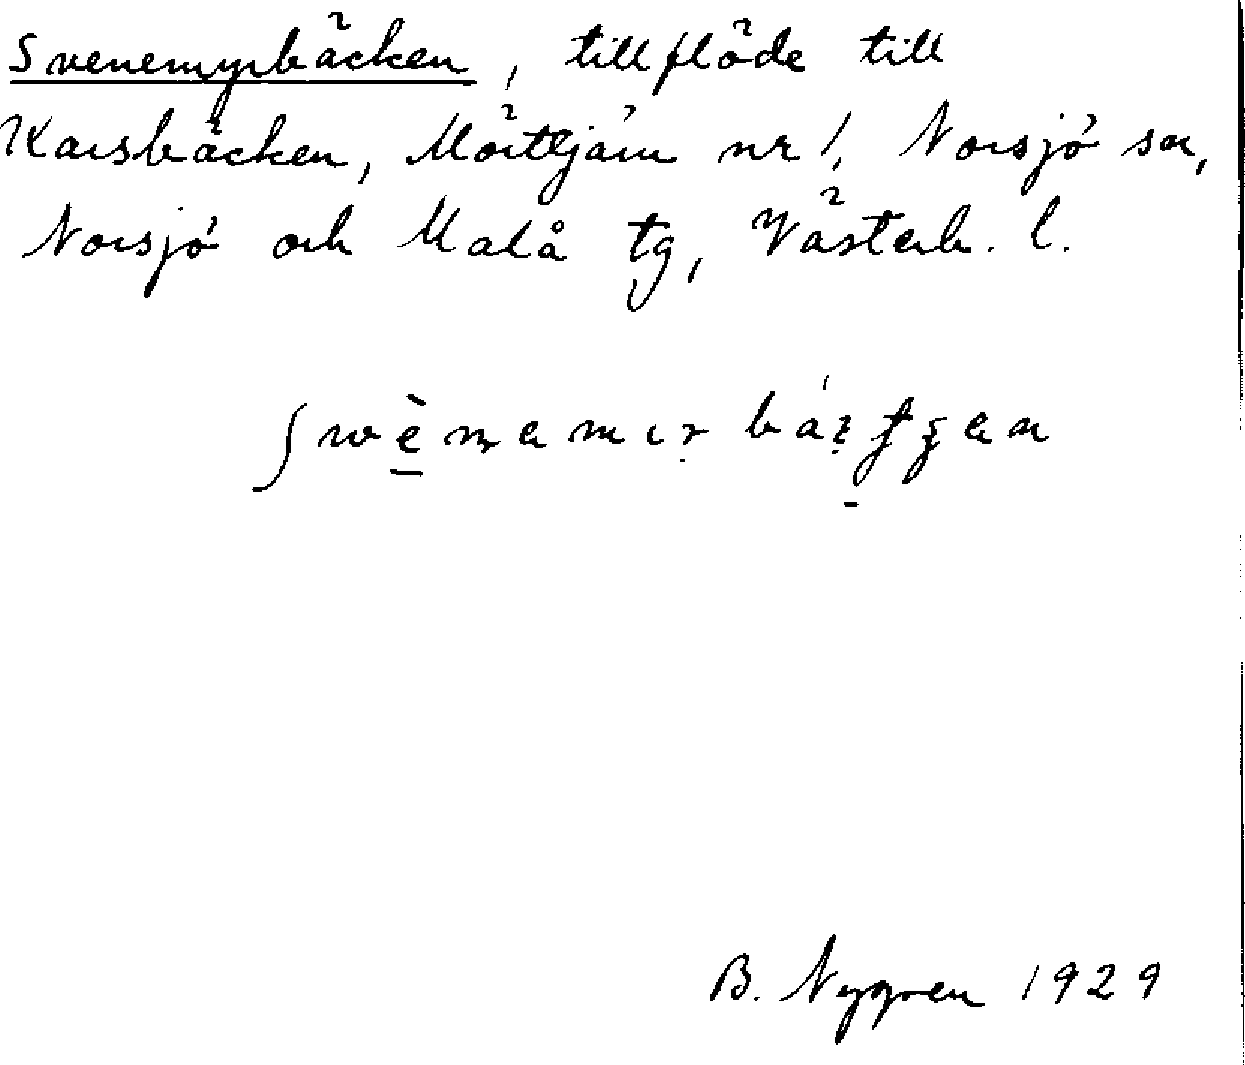 Svenemyrbäcken, tillflöde till
Karsbäcken, Mörttjärn nr 1, Norsjö sn,
Norsjö och Malå tg, Västerb. l.
B. Nygren 1929